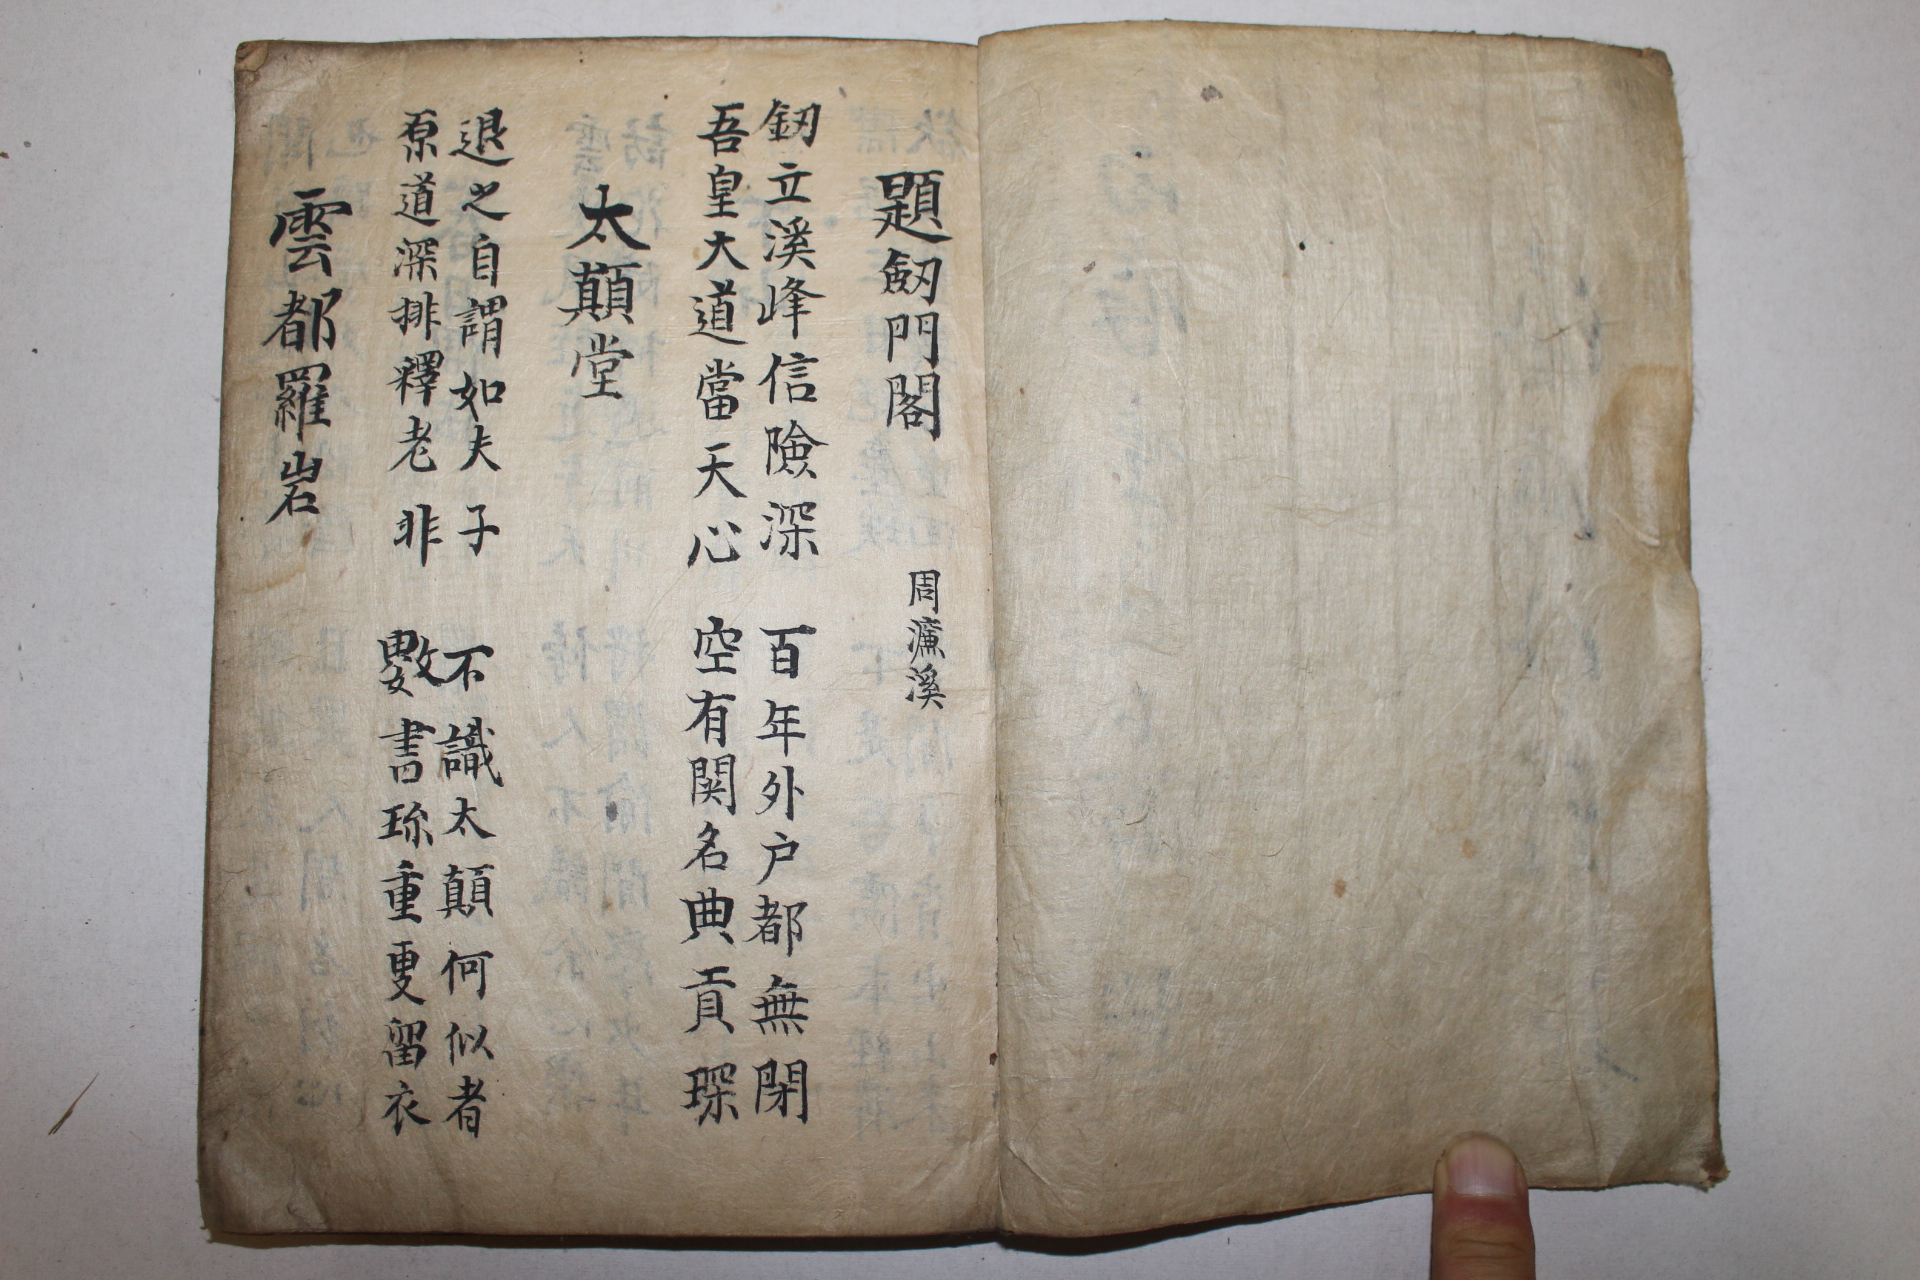 題劒門閣 周濂溪
劒立溪峰信險深 百年外户都無閉
吾皇大道當天心 空有関名典貢琛
太顛堂
退之自謂如夫子 不識太顛何似者
原道深排釋老非 數書珎重更留衣
雲都羅岩